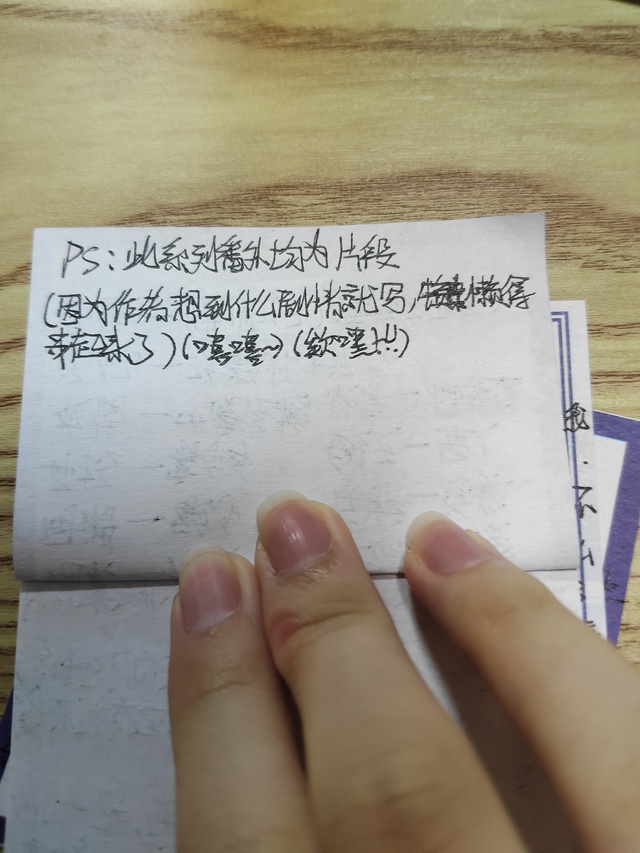 PS：此系列番外均为片段
(因为作者想到什么剧情就写，懒得
来了)(嘻嘻~)(欸嘿!!!)
我.不